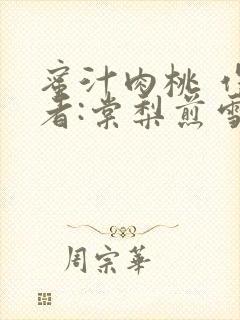 蜜汁肉桃
者:棠梨煎雪
周宗華